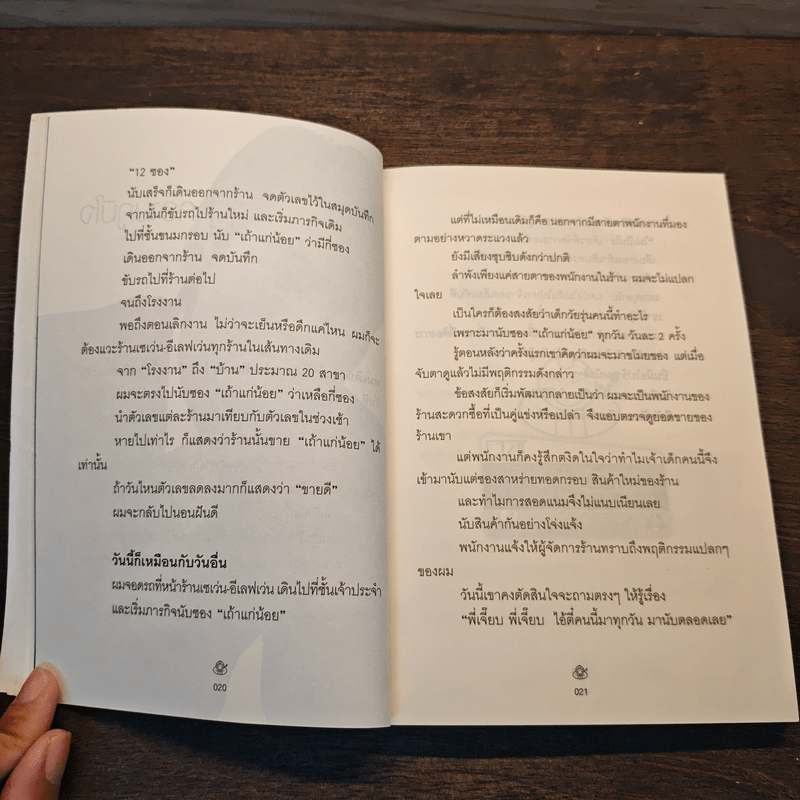 “12 ซอง”
นับเสร็จก็เดินออกจากร้าน จดตัวเลขไว้ในสมุดบันทึก
จากนั้นก็ขับรถไปร้านใหม่ และเริ่มภารกิจเดิม
ไปที่ชั้นขนมกรอบ นับ “เถ้าแก่น้อย” ว่ามีกี่ซอง
เดินออกจากร้าน จดบันทึก
ขับรถไปที่ร้านต่อไป
จนถึงโรงงาน
พอถึงตอนเลิกงาน ไม่ว่าจะเย็นหรือดึกแค่ไหน ผมก็จะ
ต้องแวะร้านเซเว่น-อีเลฟเว่นทุกร้านในเส้นทางเดิม
จาก “โรงงาน” ถึง “บ้าน” ประมาณ 20 สาขา
ผมจะตรงไปนับซอง “เถ้าแก่น้อย” ว่าเหลือกี่ซอง
นำตัวเลขแต่ละร้านมาเทียบกับตัวเลขในช่วงเช้า
หายไปเท่าไร ก็แสดงว่าร้านนั้นขาย “เถ้าแก่น้อย” ได้
เท่านั้น
ถ้าวันไหนตัวเลขลดลงมากก็แสดงว่า “ขายดี”
ผมจะกลับไปนอนฝันดี
วันนี้ก็เหมือนกับวันอื่น
ผมจอดรถที่หน้าร้านเซเว่น-อีเลฟเว่น เดินไปที่ชั้นเจ้าประจำ
และเริ่มภารกิจนับซอง “เถ้าแก่น้อย”
020
แต่ที่ไม่เหมือนเดิมก็คือ นอกจากมีสายตาพนักงานที่มอง
ตามอย่างหวาดระแวงแล้ว
ยังมีเสียงซุบซิบดังกว่าปกติ
ลำพังเพียงแค่สายตาของพนักงานในร้าน ผมจะไม่แปลก
ใจเลย
เป็นใครก็ต้องสงสัยว่าเด็กวัยรุ่นคนนี้ทำอะไร
เพราะมานับซอง “เถ้าแก่น้อย” ทุกวัน วันละ 2 ครั้ง
รู้ตอนหลังว่าครั้งแรกเขาคิดว่าผมจะมาขโมยของ แต่เมื่อ
จับตาดูแล้วไม่มีพฤติกรรมดังกล่าว
ข้อสงสัยก็เริ่มพัฒนากลายเป็นว่า ผมจะเป็นพนักงานของ
ร้านสะดวกซื้อที่เป็นคู่แข่งหรือเปล่า จึงแอบตรวจดูยอดขายของ
ร้านเขา
แต่พนักงานก็คงรู้สึกตงิดในใจว่าทำไมเจ้าเด็กคนนี้จึง
เข้ามานับแต่ซองสาหร่ายทอดกรอบ สินค้าใหม่ของร้าน
และทำไมการสอดแนมจึงไม่แนบเนียนเลย
นับสินค้ากันอย่างโจ่งแจ้ง
พนักงานแจ้งให้ผู้จัดการร้านทราบถึงพฤติกรรมแปลกๆ
ของผม
วันนี้เขาคงตัดสินใจจะถามตรงๆ ให้รู้เรื่อง
“พี่เจี๊ยบ พี่เจี๊ยบ ไอ้ตี๋คนนี้มาทุกวัน มานับตลอดเลย”
021